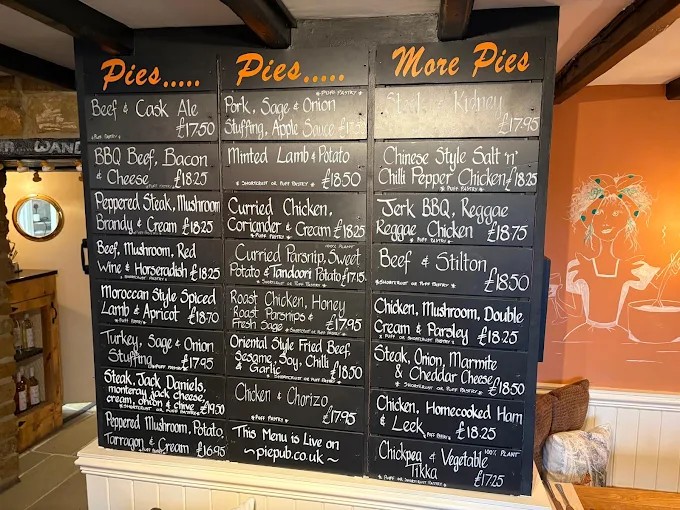 Pies.....
Beef & Cask Ale
* PUFF PASTRY * £17.50
BBQ Beef, Bacon
& Cheese * PUFF PASTRY * £18.25
Peppered Steak, Mushroom
Brandy & Cream £18.25
Beef, Mushroom, Red
Wine & Horseradish £18.25
* SHORTCRUST OR PUFF PASTRY *
Moroccan Style Spiced
Lamb & Apricot £18.70
* PUFF PASTRY *
Turkey, Sage & Onion
Stuffing * PUFF PASTRY * £17.95
Steak, Jack Daniels,
monteray jack cheese,
cream, onion & chive £19.50
* SHORTCRUST OR PUFF PASTRY *
Peppered Mushroom, Potato
Tarragon & Cream £16.95
* PUFF PASTRY *
Pies.....
* PUFF PASTRY *
Pork, Sage & Onion
Stuffing, Apple Sauce
Minted Lamb & Potato
* SHORTCRUST OR PUFF PASTRY * £18.50
Curried Chicken,
Coriander & Cream £18.25
* PUFF PASTRY *
100% PLANT
Curried Parsnip, Sweet
Potato & Tandoori Potato £17.15
* SHORTCRUST OR PUFF PASTRY *
Roast Chicken, Honey
Roast Parsnips &
Fresh Sage £17.95
* SHORTCRUST OR PUFF PASTRY *
Oriental Style Fried Beef,
Sesame, Soy, Chilli
& Garlic £18.50
* SHORTCRUST OR PUFF PASTRY *
Chicken & Chorizo
* PUFF PASTRY * £17.95
This Menu is Live on
~ piepub.co.uk ~
More Pies
Steak & Kidney
£17.95
Chinese Style Salt 'n'
Chilli Pepper Chicken £18.25
* PUFF PASTRY *
Jerk BBQ, Reggae
Reggae Chicken £18.75
* PUFF PASTRY *
Beef & Stilton
* SHORTCRUST OR PUFF PASTRY * £18.50
Chicken, Mushroom, Double
Cream & Parsley £18.25
* SHORTCRUST OR PUFF PASTRY *
Steak, Onion, Marmite
& Cheddar Cheese £18.50
* SHORTCRUST OR PUFF PASTRY *
Chicken, Homecooked Ham
& Leek * PUFF PASTRY * £18.25
Chickpea & Vegetable 100% PLANT
Tikka £17.25
* PUFF OR SHORTCRUST PASTRY *